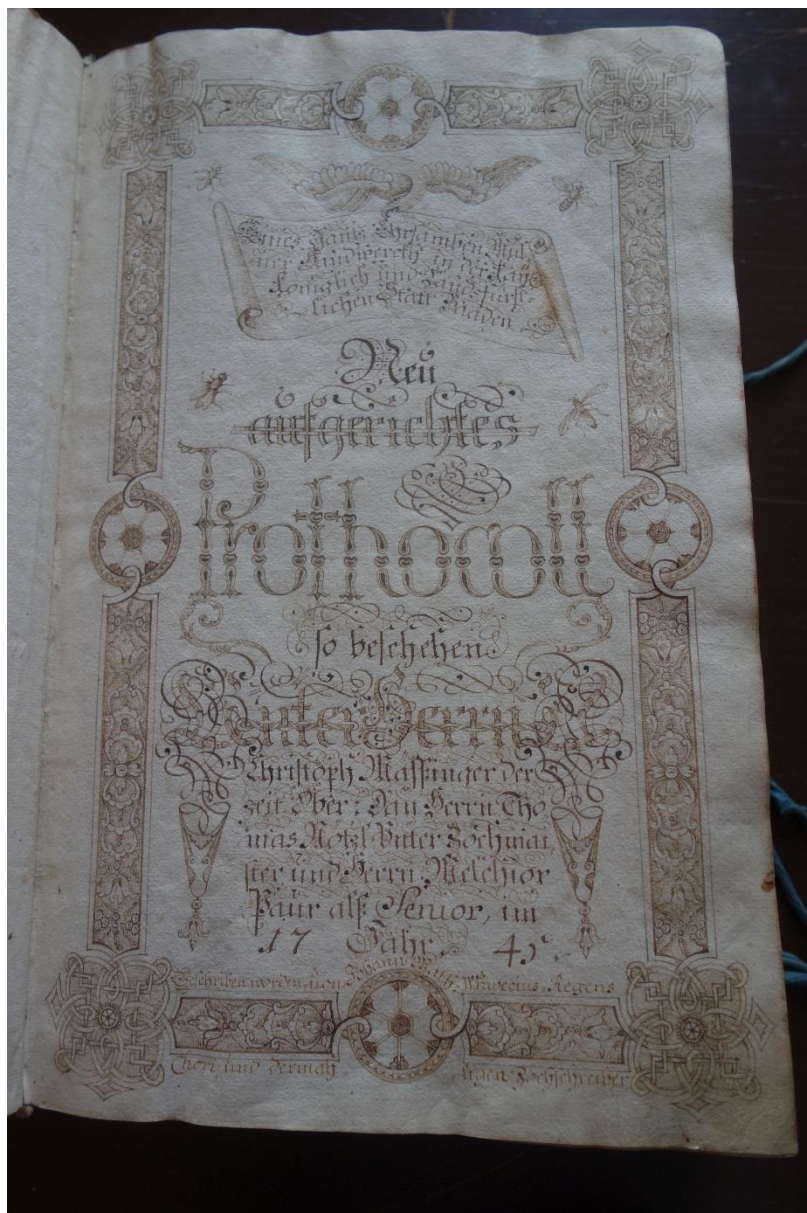 Eines Ganz Ehrsamben Mül
ner Handwerckh in der Kay:
Königlich und Landsfürst:
lichen Statt Baaden
Neü
aufgerichtes
Prothocoll
so beschehen
Unter Herrn
Christoph Massinger der
zeit Ober: Dan Herrn Tho
mas Nötzl Unter Zöchmai
ster und Herrn Melchior
Paur alß Senior, im
17 Jahr 45.
Geschriben worden von Johann Regens
Chori, und dermah ligen Zöchschreiber